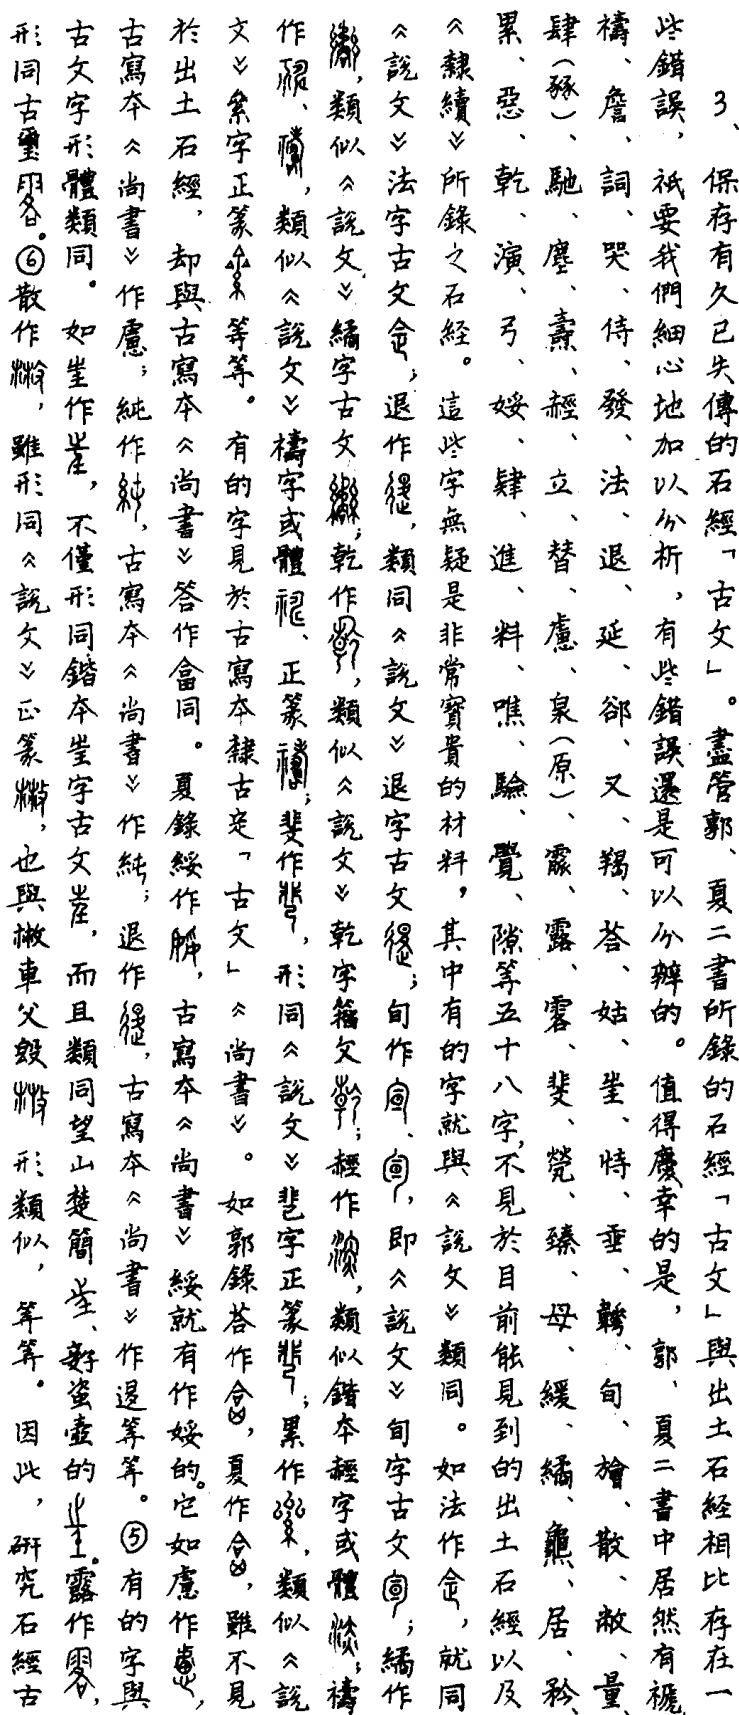 3、保存有久已失傳的石經「古文」。盡管郭、夏二書所錄的石經「古文」與出土石經相比存在一
些錯誤，祇要我們細心地加以分析，有些錯誤還是可以分辨的。值得慶幸的是，郭、夏二書中居然有褫、
禱、詹、詞、哭、侍、發、法、退、延、郤、又、羯、荅、姑、㞷、恃、垂、旬、旝、散、敝、量、
肆（豩）、馳、塵、燾、䞓、立、替、慮、泉（原）、露、斐、煢、臻、母、緩、繘、居、矜、
累、惡、乾、演、弓、婑、肆、進、料、噍、驗、覺、隙等五十八字，不見於目前能見到的出土石經以及
《隸續》所錄之石經。這些字無疑是非常寶貴的材料，其中有的字就與《說文》類同。如法作，就同
《說文》法字古文；退作，類同《說文》退字古文；旬作、，即《說文》旬字古文；繘作
，類似《說文》繘字古文；乾作，類似《說文》乾字籀文；䞓作，類似鍇本䞓字或體；禱
作、，類似《說文》禱字或體、正篆；斐作，形同《說文》字正篆；累作，類似《說
文》絫字正篆等等。有的字見於古寫本隸古定「古文」《尚書》。如郭錄荅作，夏作，雖不見
於出土石經，却與古寫本《尚書》答作畣同。夏錄綏作，古寫本《尚書》綏就有作婑的。它如慮作，
古寫本《尚書》作；純作，古寫本《尚書》作純；退作，古寫本《尚書》作等等。⑤有的字與
古文字形體類同。如㞷作，不僅形同鍇本㞷字古文，而且類同望山楚簡、盗壺的。露作，
形同古璽。⑥散作，雖形同《說文》正篆，也與車父殷形類似，等等。因此，研究石經古